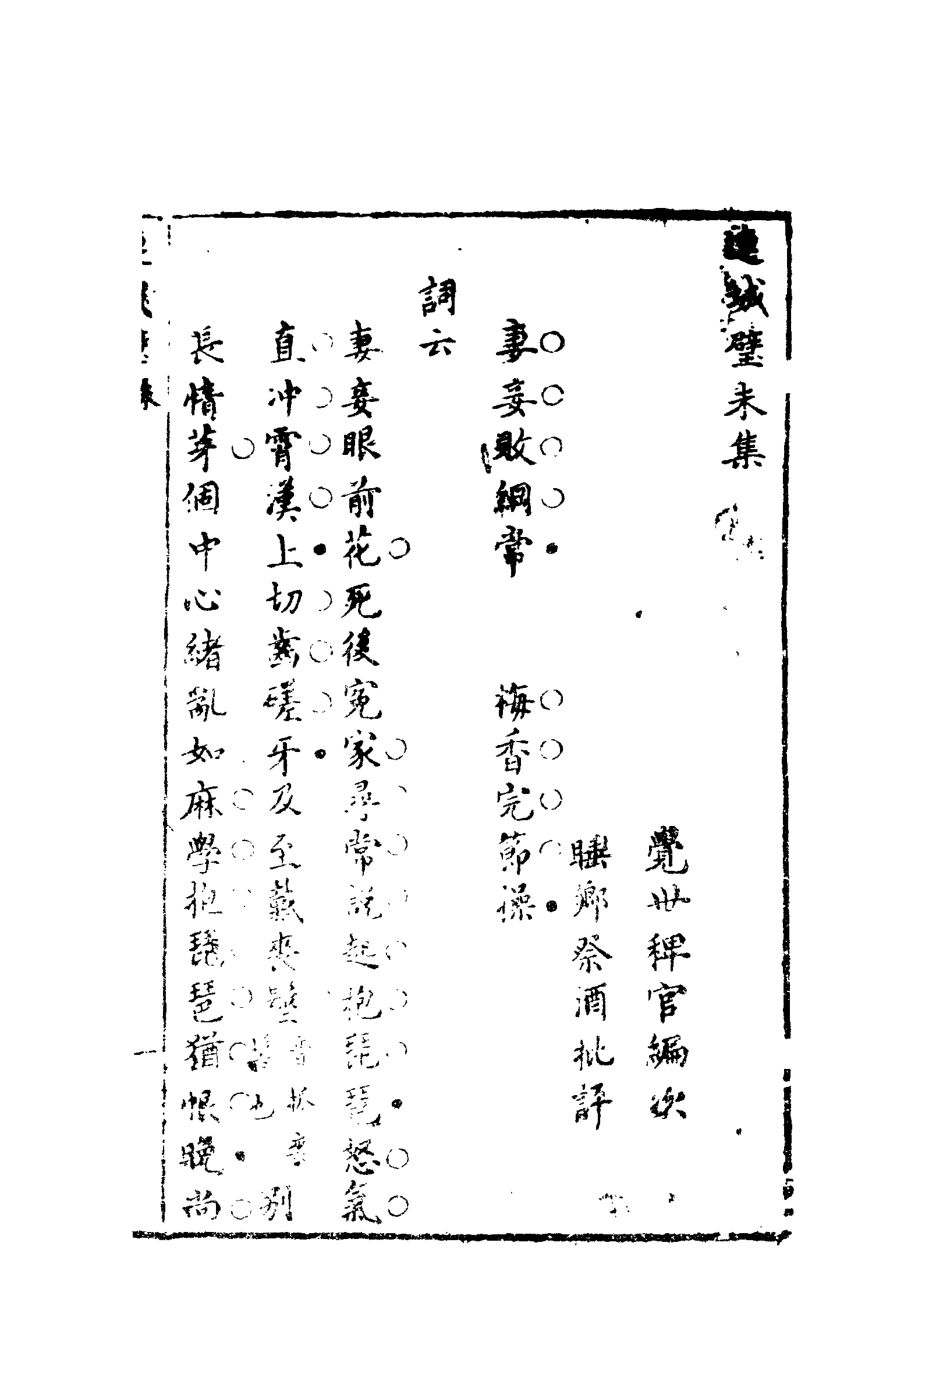 連城璧未集
覺世稗官編次
睡鄉祭酒批評
妻妾敗綱常 梅香完節操
詞云
妻妾眼前花死後冤家尋常說起抱琵琶怒氣
直冲霄漢上切齒磋牙及至戴喪髽 音抓喪髻也 別
長情芽個中心緒亂如麻學抱琵琶猶恨晚尚